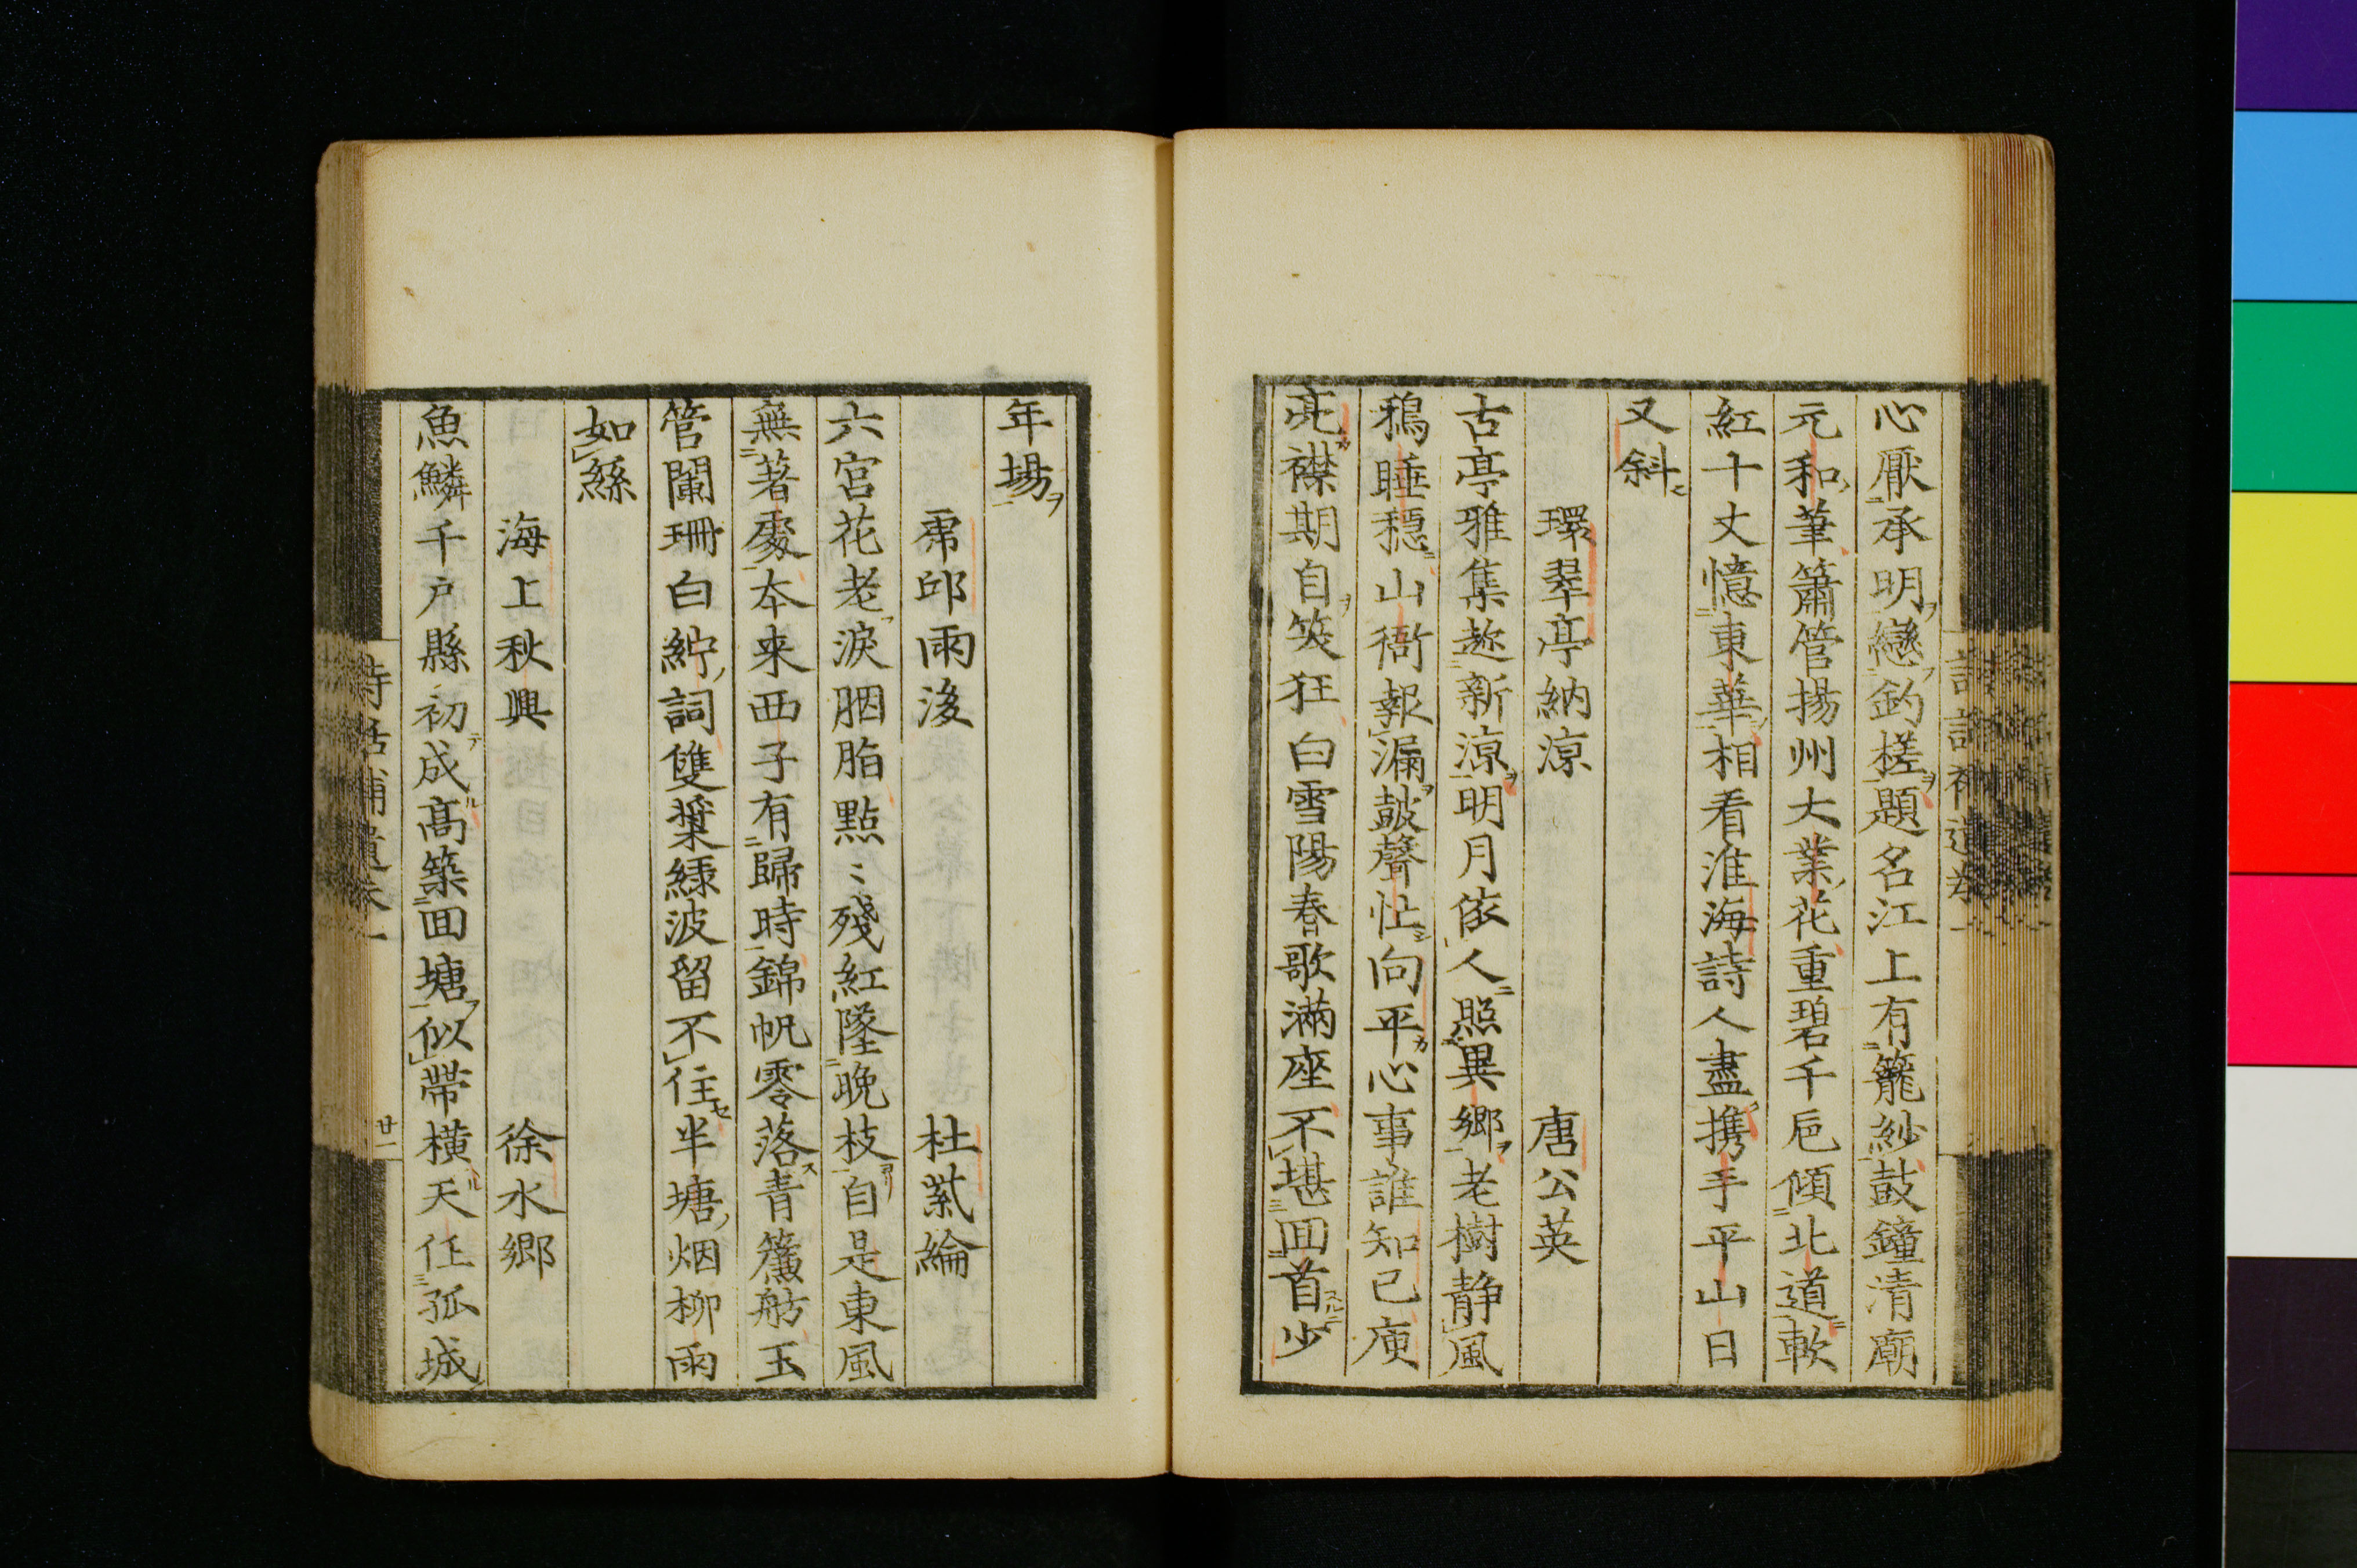 心厭承明戀釣槎題名江上有籠紗鼓鐘清廟
元和筆簫管揚州大業花重碧千巵傾北道軟
紅十丈憶東華相看淮海詩人盡攜手平山日
又斜
環翠亭納涼 唐公英
古亭雅集趂新涼明月依人照異鄉老樹静風
鴉睡穏山衙報漏皷聲忙向平心事誰知己庾
亮襟期自笑狂白雪陽春歌滿座不堪回首少
年場
席邱雨後 杜紫綸
六宮花老淚胭脂點〻殘紅墜晚枝自是東風
無著處本来西子有歸時錦帆零落青簾舫玉
管闌珊白紵詞雙槳緑波留不住半塘烟柳雨
如絲
海上秋興 徐水郷
魚鱗千戸縣初成高築回塘似帶橫天任孤城
詩話補遺卷一
廿一